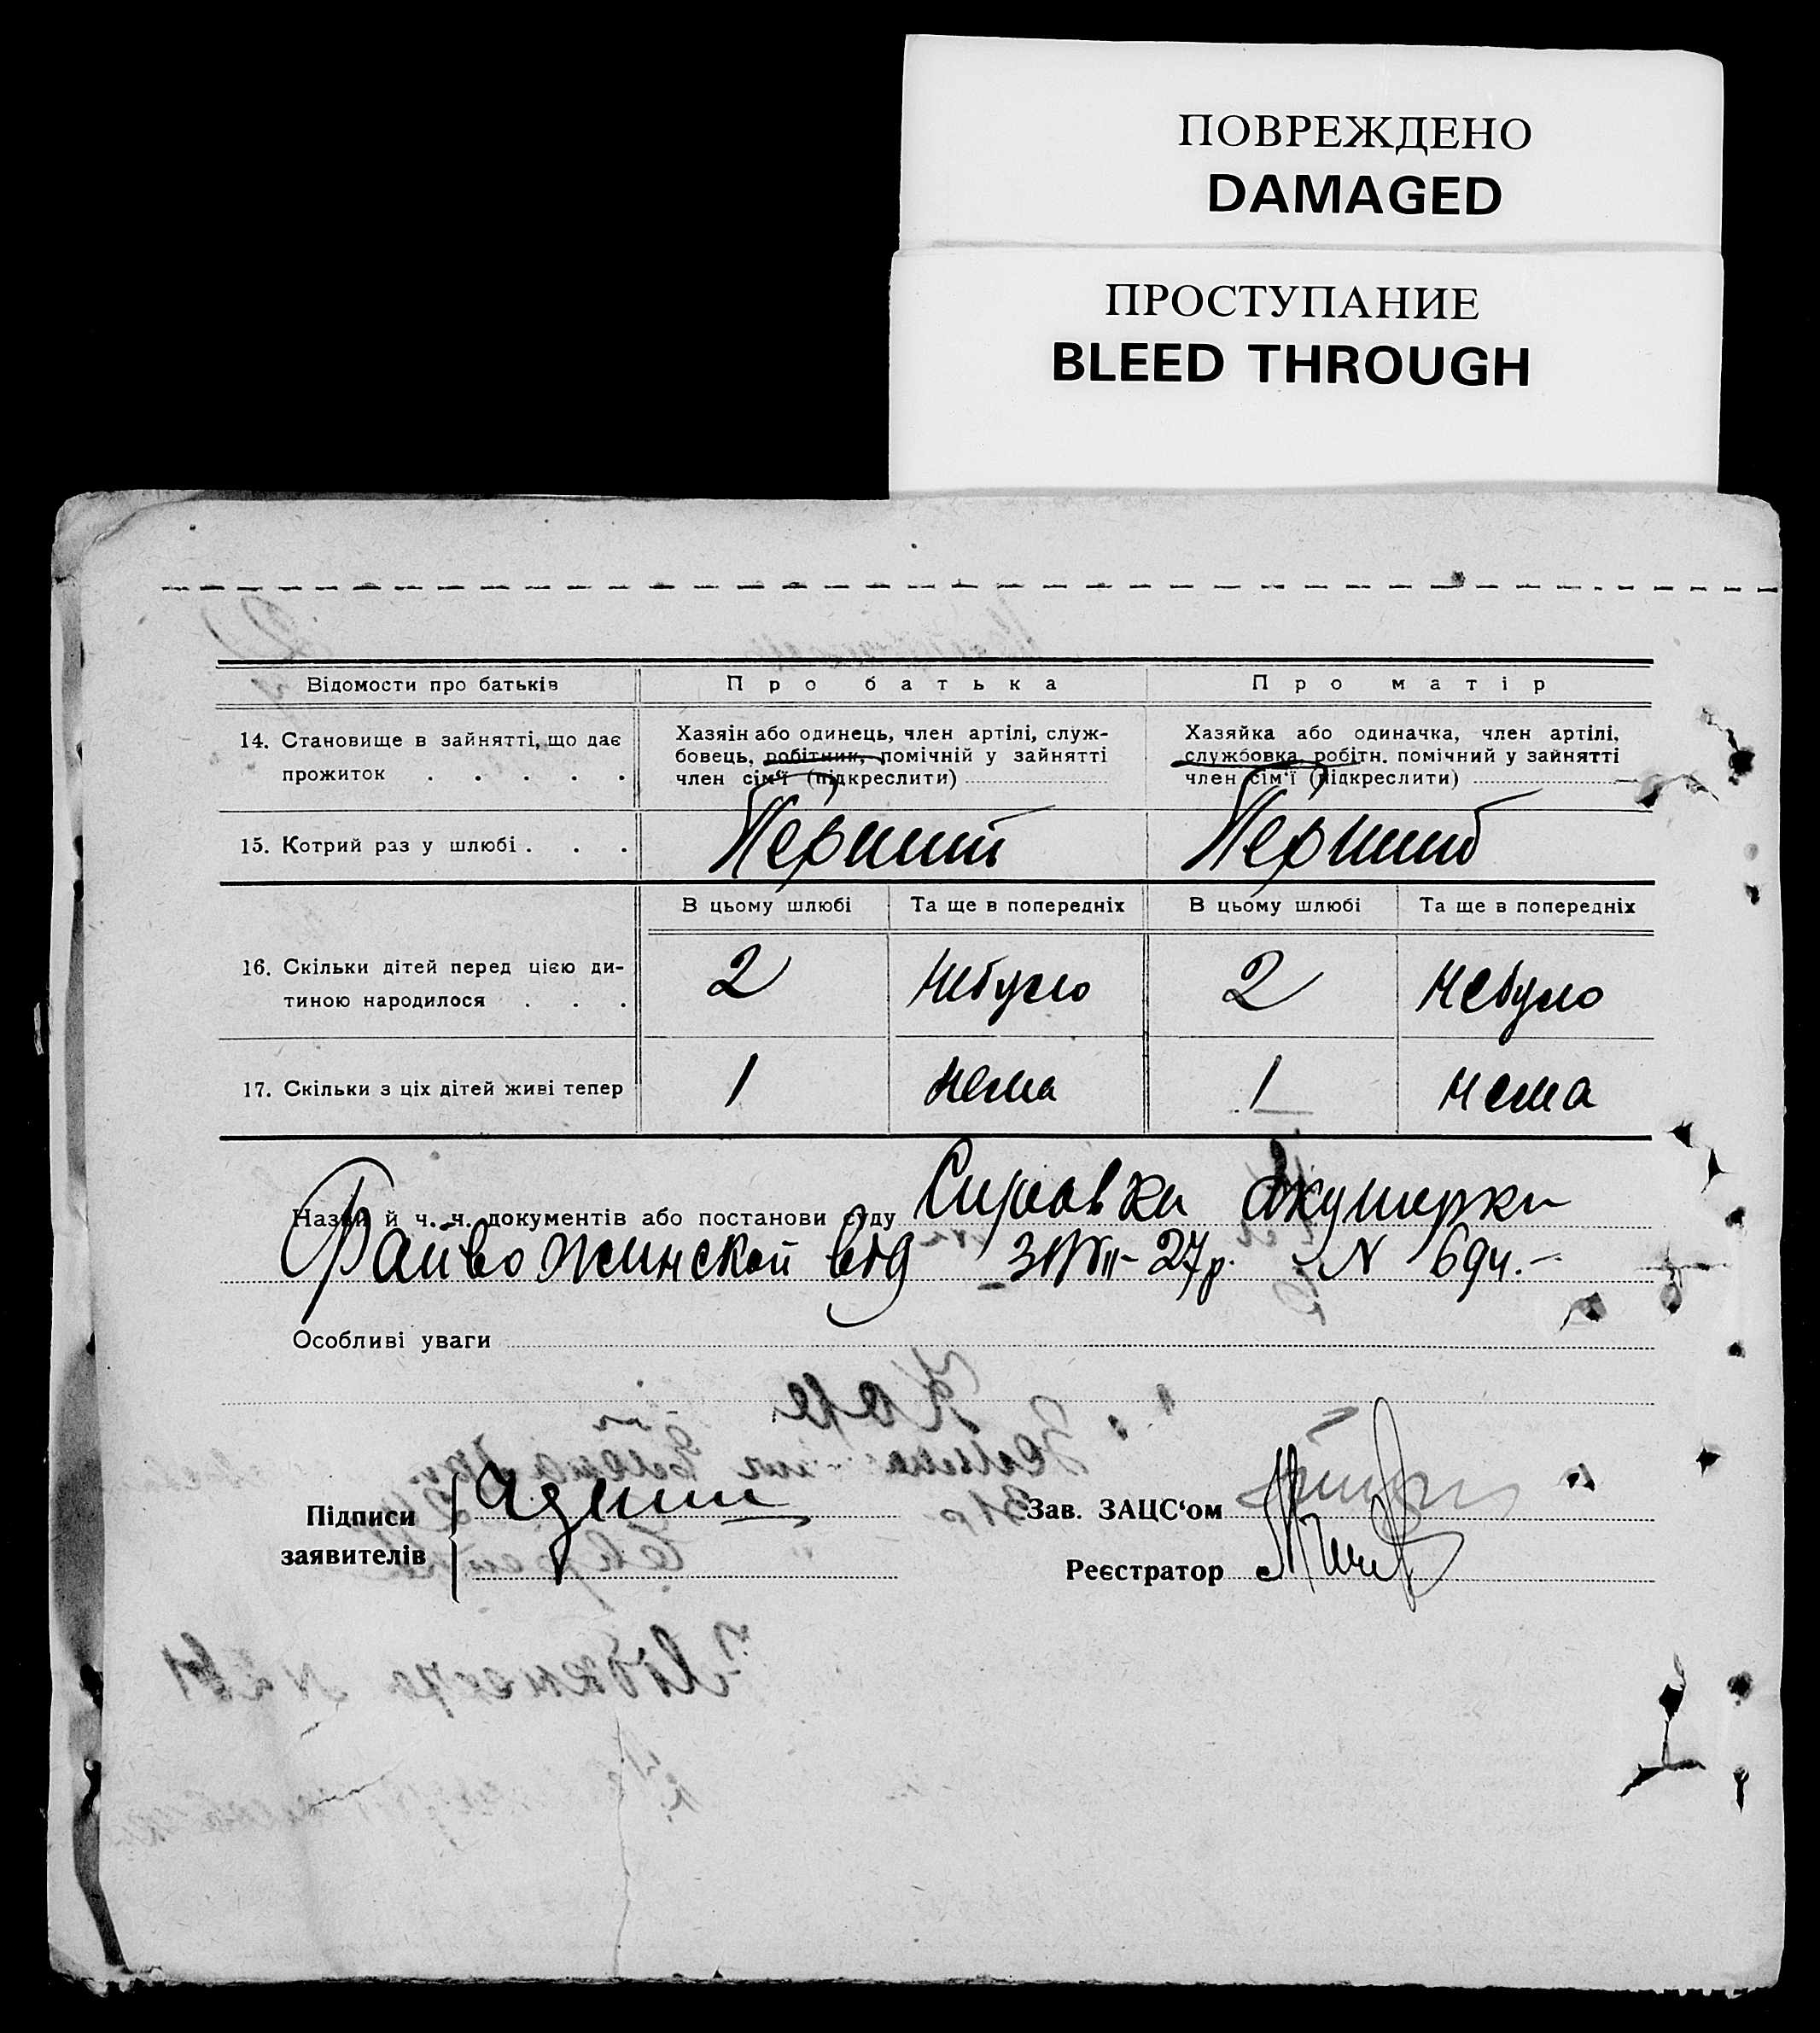 ПОВРЕЖДЕНО
DAMAGED
ПРОСТУПАНИЕ
BLEED THROUGH
Відомости про батьків Про батька Про матір
14. Становище в зайнятті, що дає
прожиток . . . . .
Хазяін або одинець, член артілі, служ-
бовець, робітник, помічній у зайнятті
член сім'ї (підкреслити)
Хазяйка або одиначка, член артілі,
службовка, робітн. помічний у зайнятті
член сім'ї (підкреслити)
15. Котрий раз у шлюбі . . . Перший Перший
В цьому шлюбі Та ще в попередніх В цьому шлюбі Та ще в попередніх
16. Скільки дітей перед цією ди-
тиною народилося . . .
2 Небуло 2 Небуло
17. Скільки з ціх дітей живі тепер 1 нема 1 нема
Назви й ч. ч. документів або постанови суду Справка Акушерки
від 27р. N
Особливі уваги
Підписи
заявителів
Зав. ЗАЦС'ом
Реєстратор